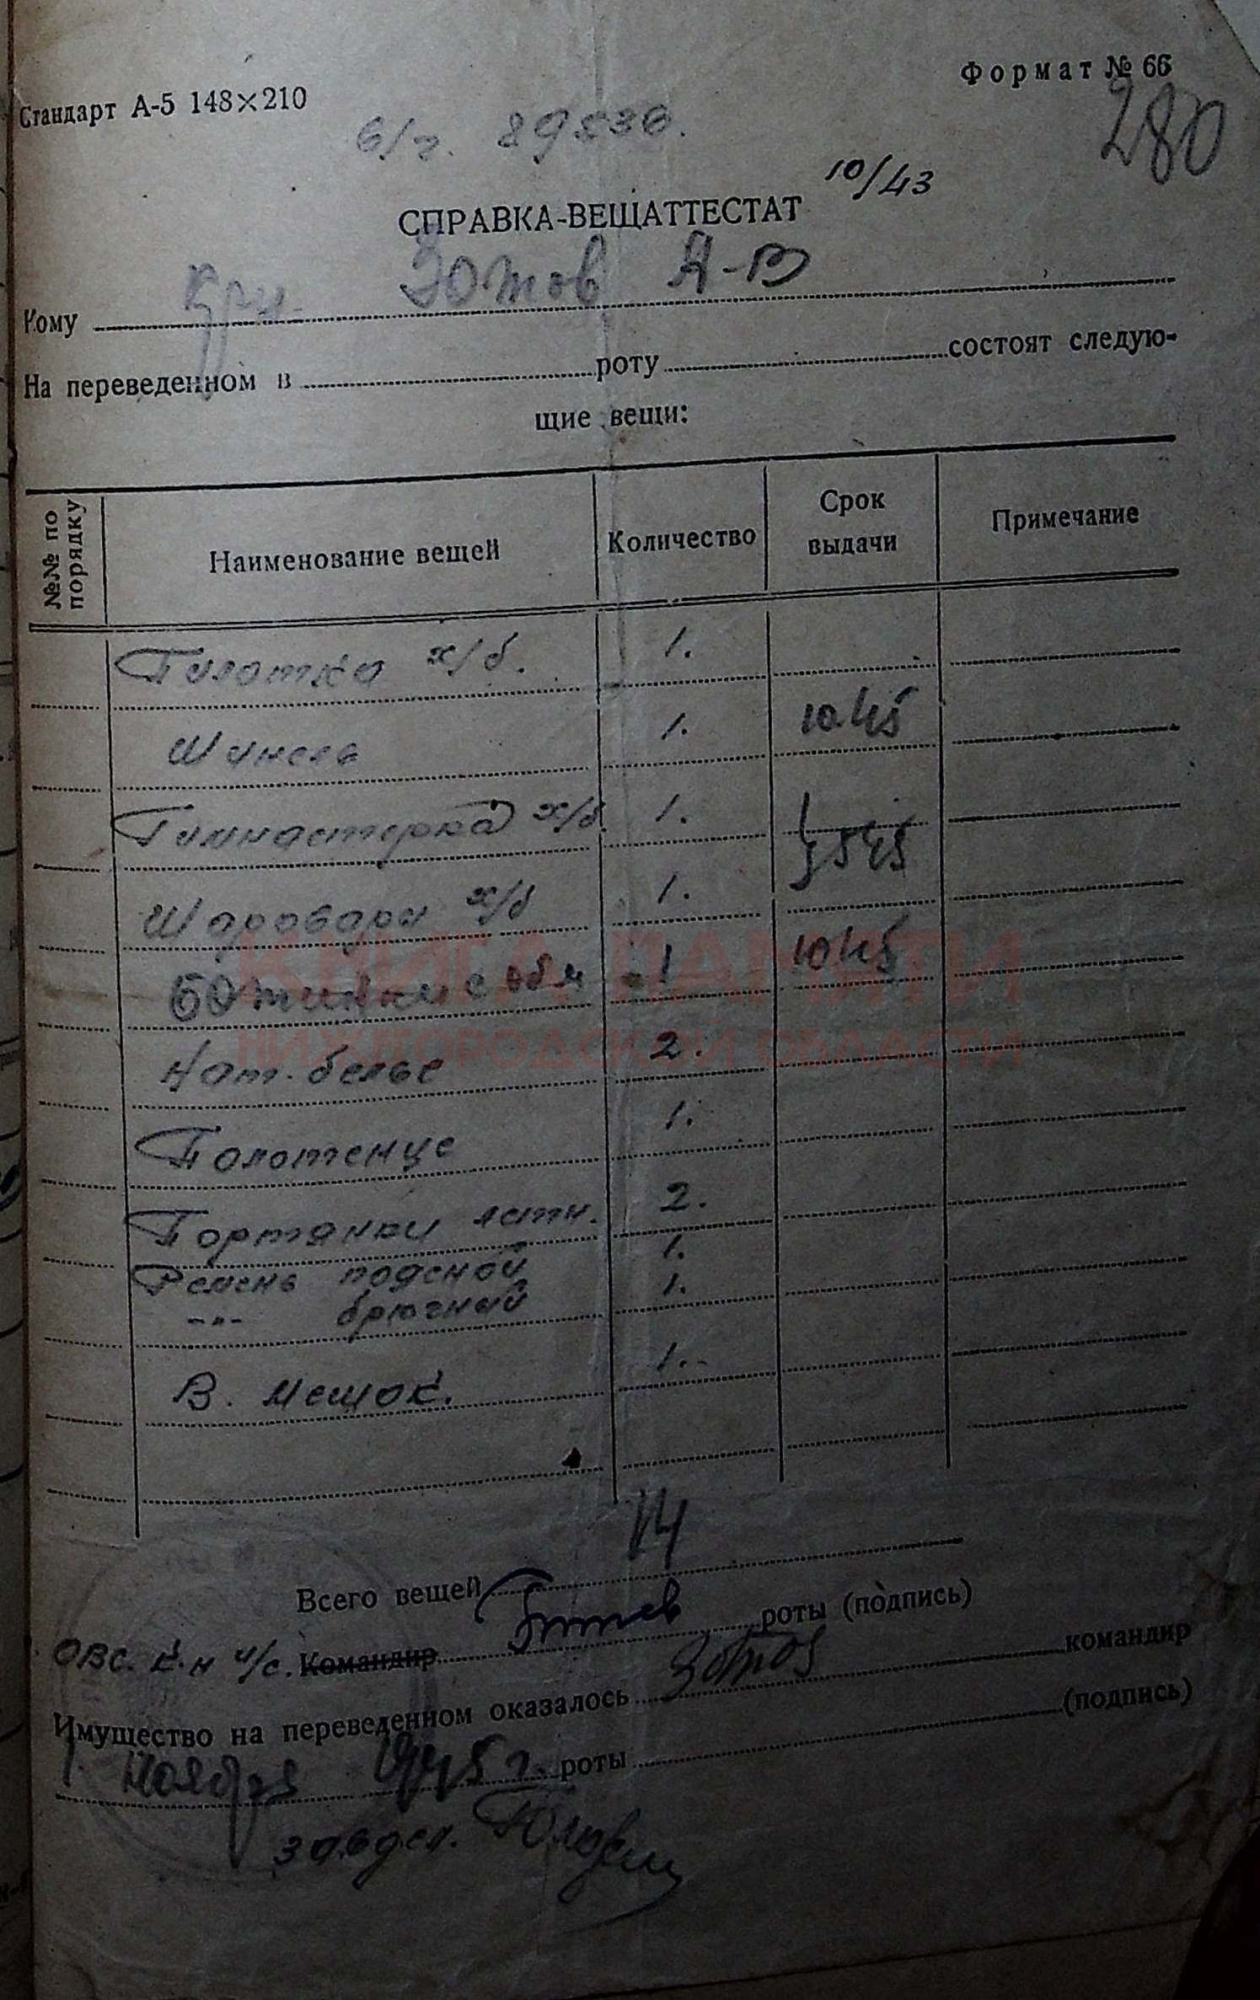 Формат № 66
Стандарт А-5 148×210
280
в/ч. 89536.
10/43
СПРАВКА-ВЕЩАТТЕСТАТ
Кому Зотов А-В
На переведенном в роту состоят следую-
щие вещи:
№№ по порядку Наименование вещей Количество Срок выдачи Примечание
Пилотка х/б. 1.
Шинель 1. 10.45
Гимнастерка х/б. 1.
5 45
Шаровары х/б 1.
Ботинки с обм 1 10 45
Нат. белье 2.
Полотенце 1.
Портянки летн. 2.
Ремень поясной 1.
-"- брючный 1.
В. мешок. 1.
КНИГА ПАМЯТИ
НИЖЕГОРОДСКОЙ ОБЛАСТИ
Всего вещей 14
ОВС. Командир роты (подпись)
Имущество на переведенном оказалось Зотов командир
1. Ноября 1945 г. роты (подпись)